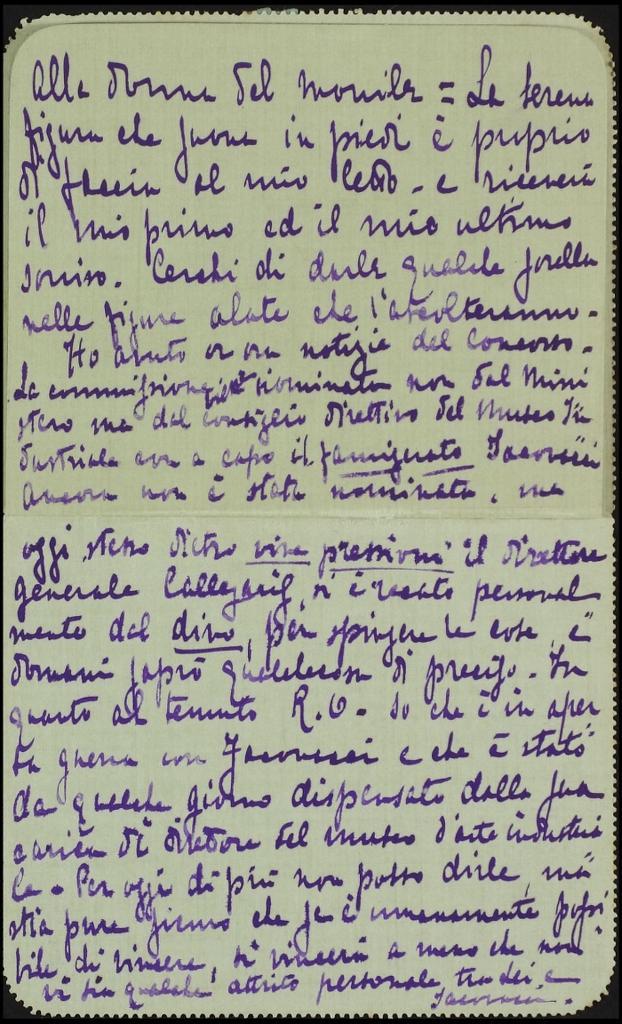 alla donna del monile = La serena
figura che suona in piedi è proprio
di faccia al mio letto - e riceverà
il mio primo ed il mio ultimo
sorriso. Cerchi di darle qualche sorella
nelle figure alate che l'ascolteranno -
Ho avuto or ora notizie del concorso.
La commissione nominata non dal Mini
stero ma dal consiglio direttivo del Museo In
dustriale con a capo il famigerato Jacovacci
ancora non è stata nominata, ma
oggi stesso dietro vive pressioni il direttore
generale Callegaris, si è recato personal
mente dal divo, per spingere le cose, e
domani saprò qualchecosa di preciso. In
quanto al temuto R.O. so che è in aper
ta guerra con Jacovacci e che è stato
da qualche giorno dispensato dalla sua
carica di direttore del museo d'arte industria
le. Per oggi di più non posso dirle, ma
stia pure sicuro che se è umanamente possi
bile di vincere, si vincerà a meno che non
vi sia qualche attrito personale tra lei e
Jacovacci.